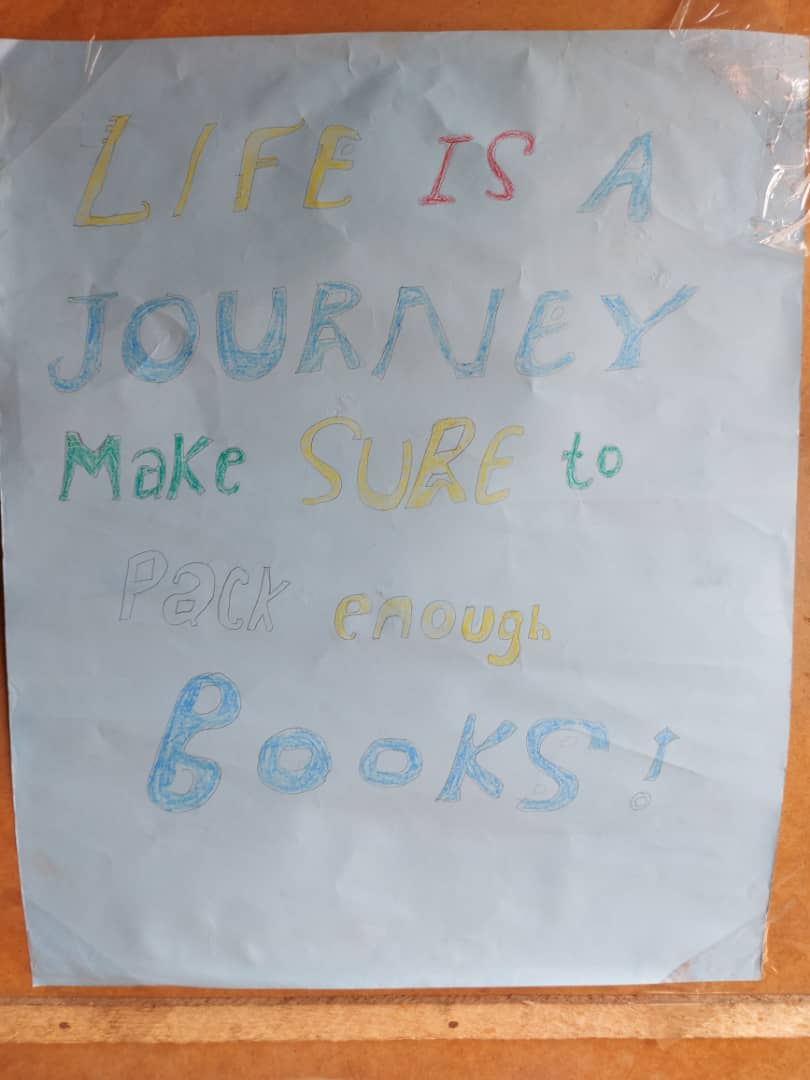 LIFE IS A
JOURNEY
Make SURE to
Pack enough
BOOKS!